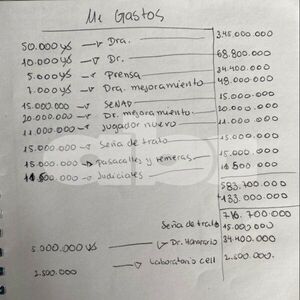 Mis Gastos
345.000.000
50.000 u$ → Dra.
10.000 u$ → Dr. 68.800.000
5.000 u$ → Prensa 34.400.000
7.000 u$ → Dra. mejoramiento 48.000.000
15.000.000 → SENAD 15.000.000
20.000.000 → Dr. mejoramiento 20.000.000
11.000.000 → jugador nuevo 11.000.000
15.000.000 → Seña de trato 15.000.000
15.000.000 → pasacalles y remeras 15.000.000
11.500.000 → Judiciales 11.500.000
583.700.000
133.000.000
716.700.000
Seña de trato 15.000.000
5.000.000 u$ → Dr. Honorario 34.400.000
2.500.000 → Laboratorio cell 2.500.000